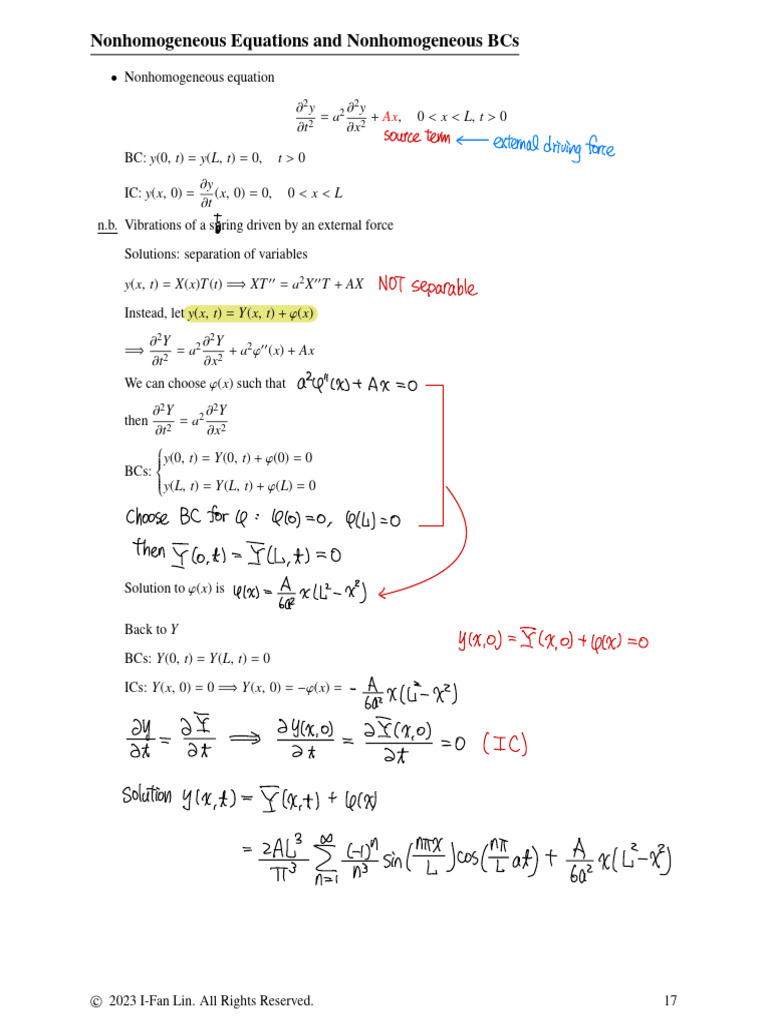 Nonhomogeneous Equations and Nonhomogeneous BCs
• Nonhomogeneous equation
∂²y/∂t² = a² ∂²y/∂x² + Ax, 0 < x < L, t > 0
source term ← external driving force
BC: y(0, t) = y(L, t) = 0, t > 0
IC: y(x, 0) = ∂y/∂t (x, 0) = 0, 0 < x < L
n.b. Vibrations of a string driven by an external force
Solutions: separation of variables
y(x, t) = X(x)T(t) ⟹ XT″ = a²X″T + AX NOT separable
Instead, let y(x, t) = Y(x, t) + φ(x)
⟹ ∂²Y/∂t² = a² ∂²Y/∂x² + a²φ″(x) + Ax
We can choose φ(x) such that a²φ″(x) + Ax = 0
then ∂²Y/∂t² = a² ∂²Y/∂x²
BCs: { y(0, t) = Y(0, t) + φ(0) = 0
y(L, t) = Y(L, t) + φ(L) = 0
Choose BC for φ : φ(0) = 0, φ(L) = 0
then Y(0,t) = Y(L,t) = 0
Solution to φ(x) is φ(x) = A/6a² x(L² − x²)
Back to Y
y(x,0) = Y(x,0) + φ(x) = 0
BCs: Y(0, t) = Y(L, t) = 0
ICs: Y(x, 0) = 0 ⟹ Y(x, 0) = −φ(x) = − A/6a² x(L² − x²)
∂y/∂t = ∂Y/∂t ⟹ ∂y(x,0)/∂t = ∂Y(x,0)/∂t = 0 (IC)
Solution y(x,t) = Y(x,t) + φ(x)
= 2AL³/π³ ∑ₙ₌₁^∞ (-1)ⁿ/n³ sin(nπx/L) cos(nπ/L at) + A/6a² x(L² − x²)
© 2023 I-Fan Lin. All Rights Reserved. 17